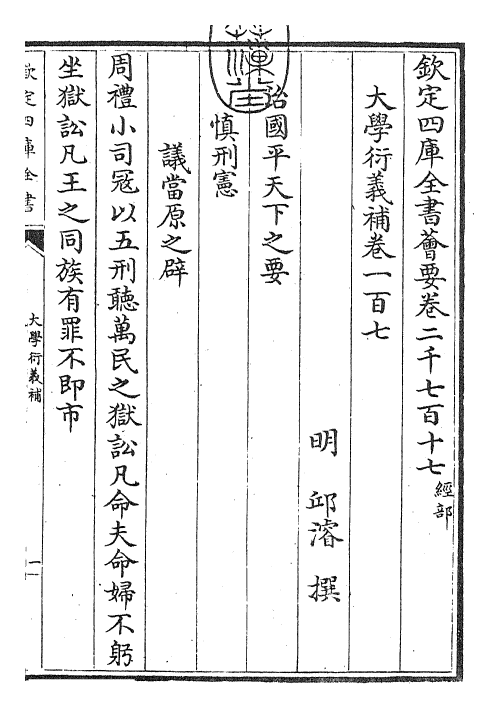 欽定四庫全書薈要卷二千七百十七經部
大學衍義補卷一百七
明 邱濬 撰
治國平天下之要
慎刑憲
議當原之辟
周禮小司冦以五刑聽萬民之獄訟凡命夫命婦不躬
坐獄訟凡王之同族有罪不即市
欽定四庫全書
大學衍義補
一